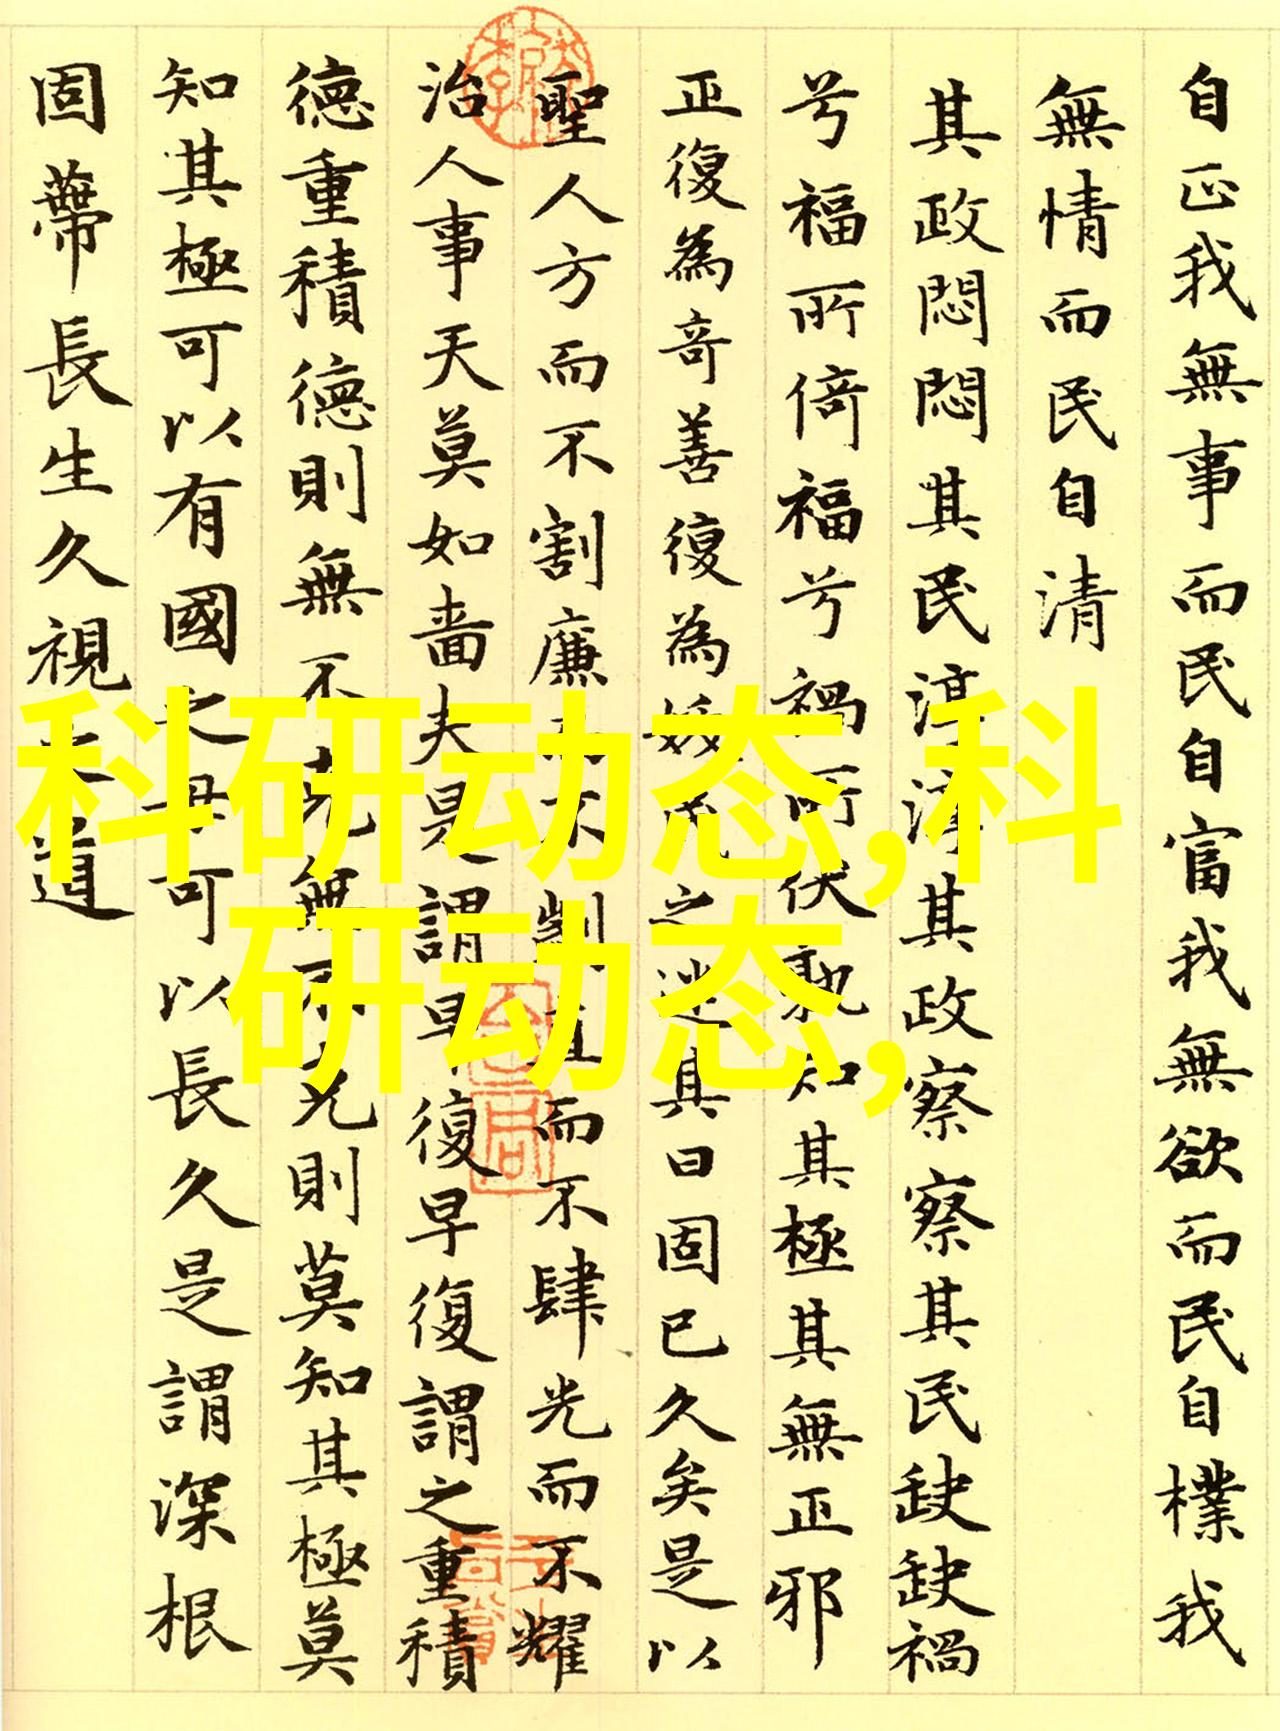 自正我無事而民自富我無欲而民自樸我
無情而民自清
其政悶悶其民淳淳其政察察其民缺缺禍
兮福所倚福兮禍所伏孰知其極其無正邪
正復為奇善復為妖民之迷其日固已久矣是以
聖人方而不割廉而不劌直而不肆光而不耀
治人事天莫如嗇夫是謂早復早復謂之重積
德重積德則無不克無不克則莫知其極莫
知其極可以有國之母可以長久是謂深根
固蔕長生久視之道
科研动态,科
研动态,